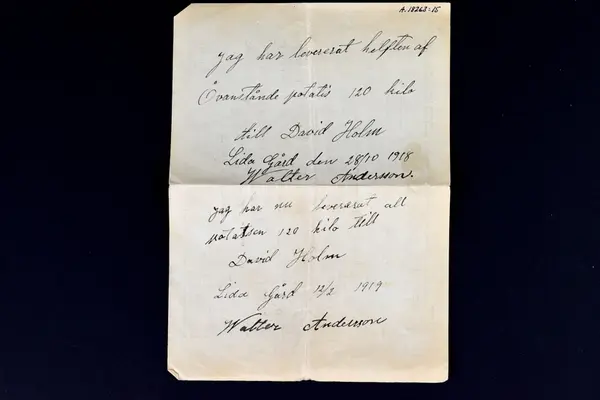 A.18263:15
Jag har levererat helften af
Ovanstånde potatis 120 kilo
till David Holm
Lida Gård den 28/10 1918
Walter Andersson.
Jag har nu levererat all
potatisen 120 kilo till
David Holm
Lida Gård 12/2 1919
Walter Andersson